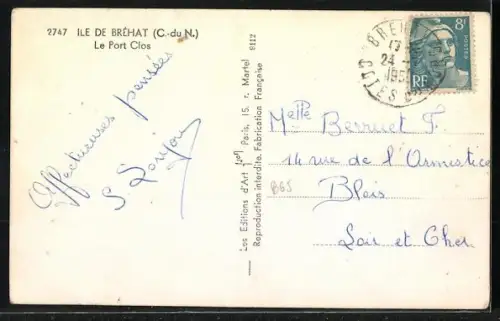 2747 ILE DE BRÉHAT (C.-du N.)
Le Port Clos
Affectueuses pensées
S.
Les Editions d'Art Paris, 15, r. Martel
Reproduction interdite. Fabrication Française
9112
BREH
17
24
195
COTES D
8F
POSTES
RF
Melle Berruet F.
14 rue de l'Armistice
Blois
Loir et Cher